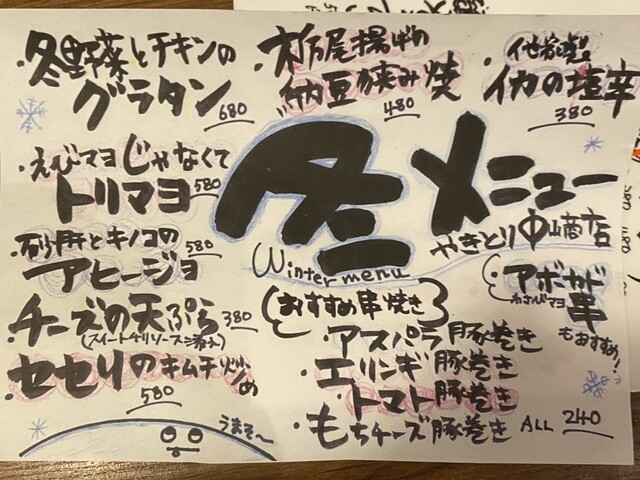 冬野菜とチキンの
グラタン 680
栃尾揚げの
納豆挟み焼
480
イカの塩辛
380
えびマヨじゃなくて
トリマヨ 580
冬メニュー
Winter menu
やきとり 中山商店
砂肝とキノコの
アヒージョ 580
チーズの天ぷら 380
セセリのキムチ炒め
580
うまそ〜
おすすめ串焼き
アスパラ豚巻き
エリンギ豚巻き
トマト豚巻き
もちチーズ豚巻き
ALL 240
アボカド
わさびマヨ 串
もおすすめ!